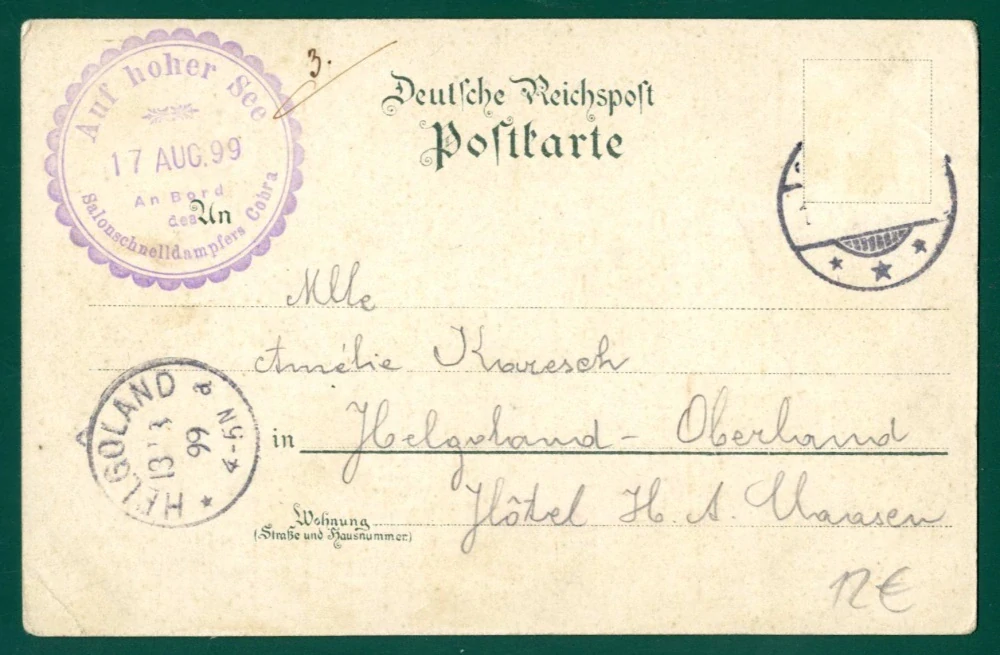 Auf hoher See
17 AUG. 99
An Bord
des
Salonschnelldampfers Cobra
3.
Deutsche Reichspost
Postkarte
An
Mlle
Amélie Karesch
in Helgoland - Oberland
Wohnung
(Straße und Hausnummer)
Hôtel H. A
HELGOLAND
99
4-5N
a
12€